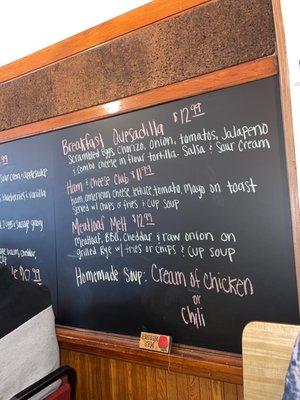 Breakfast Quesadilla $12.99
Scrambled Eggs, Chorizo, Onion, tomatos, Jalapeno
& Combo cheese in Flour Tortilla - Salsa & Sour Cream
Ham & Cheese Club $11.99
Ham, american cheese, lettuce, tomato, Mayo on toast
Served w/ chips or fries & Cup Soup
Meatloaf Melt $12.99
Meatloaf, BBQ, Cheddar & raw onion on
grilled Rye w/ fries or chips & cup Soup
Homemade Soup: Cream of Chicken
or
Chili
.99
Sour cream & applesauce
blueberries & Vanilla
Eggs, Sausage gravy
onion, cheddar,
$10.99